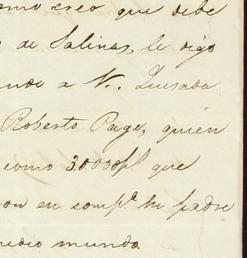 omo creo que debe
de Salinas, le digo
ando a N. Quesada
Roberto Paige, quien
como 30000 p.s que
on en comp.a tu padre
medio mundo.